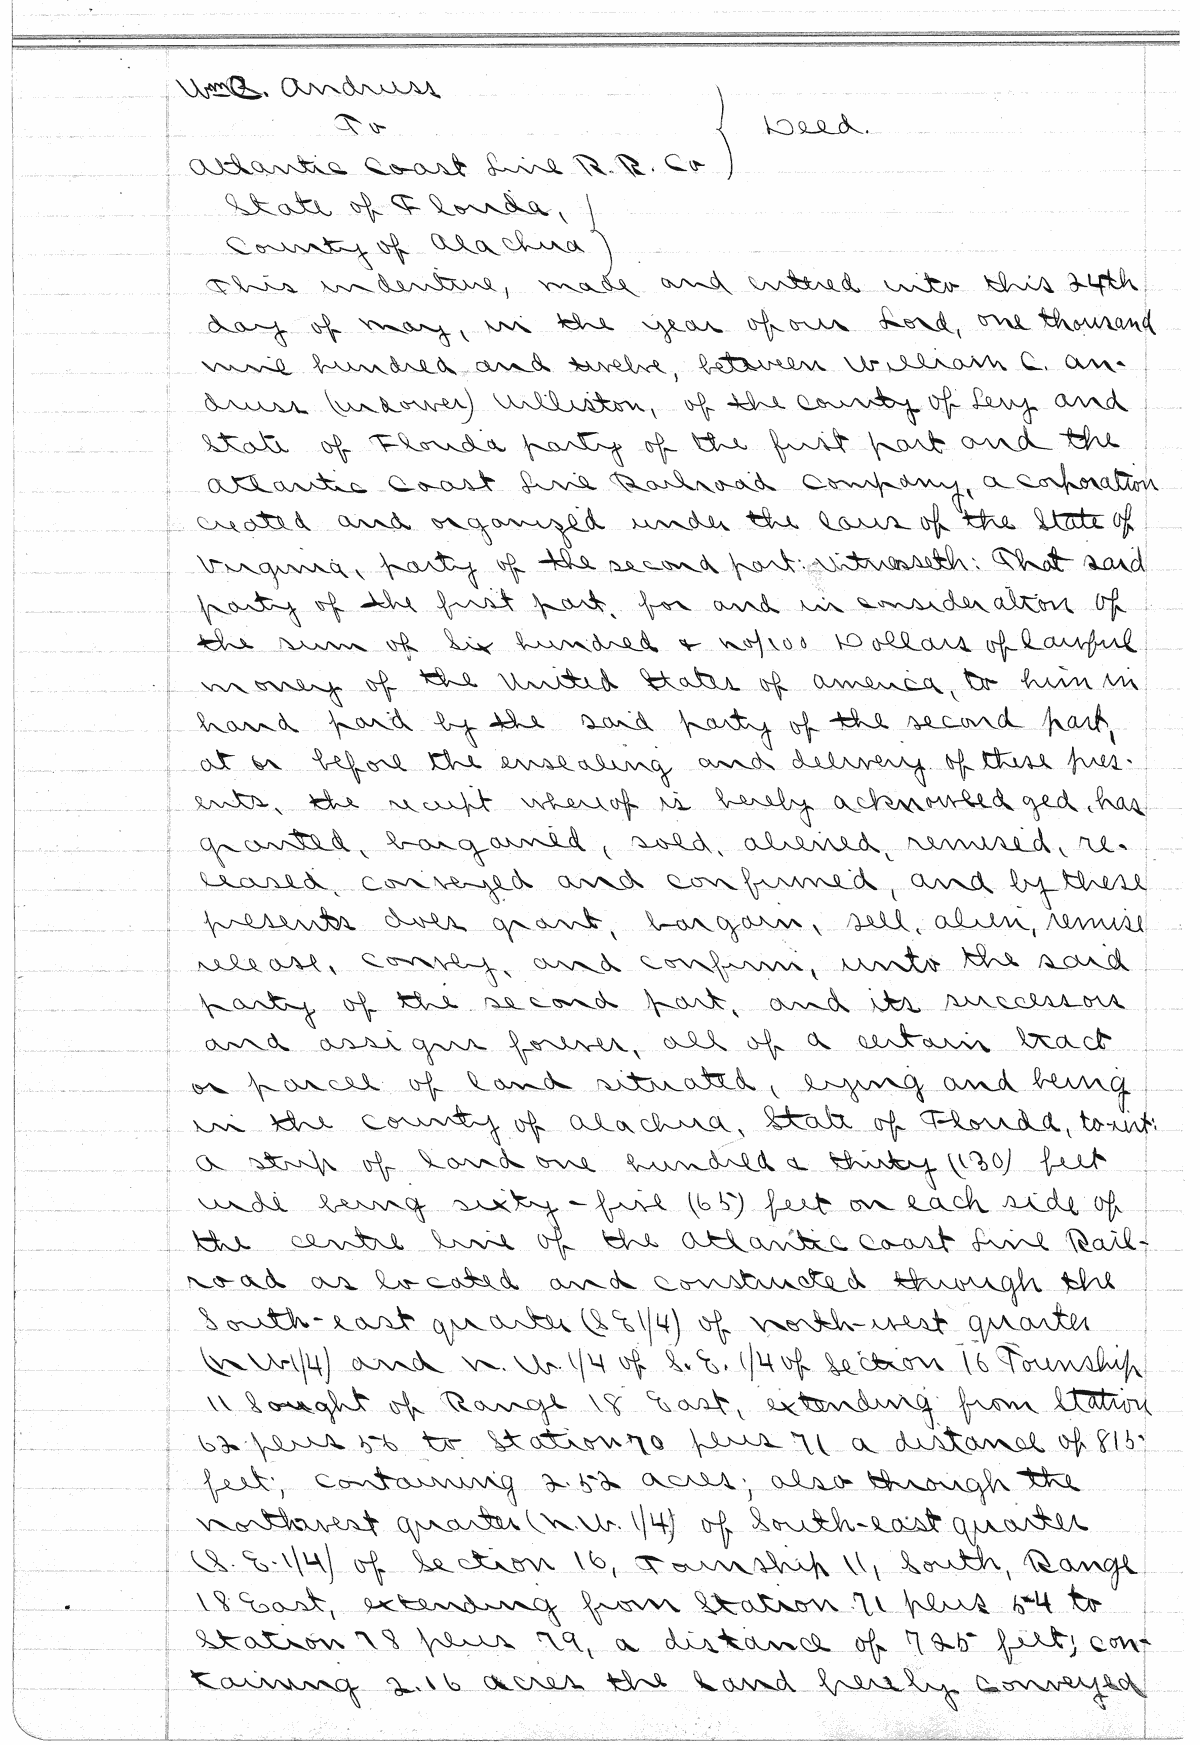 Wm C. Andruss
To } Deed.
Atlantic Coast Line R. R. Co
State of Florida, }
County of Alachua }
This indenture, made and entered into this 24th
day of May, in the year of our Lord, one thousand
nine hundred and twelve, between William C. An-
druss (widower) Williston, of the county of Levy and
State of Florida party of the first part and the
Atlantic Coast Line Railroad Company, a corporation
created and organized under the laws of the State of
Virginia, party of the second part: Witnesseth: That said
party of the first part, for and in consideration of
the sum of Six hundred & no/100 Dollars of lawful
money of the United States of America, to him in
hand paid by the said party of the second part,
at or before the ensealing and delivery of these pres-
ents, the receipt whereof is hereby acknowledged, has
granted, bargained, sold, aliened, remised, re-
leased, conveyed and confirmed, and by these
presents does grant, bargain, sell, alien, remise
release, convey, and confirm, unto the said
party of the second part, and its successors
and assigns forever, all of a certain tract
or parcel of land situated, lying and being
in the county of Alachua, State of Florida, to-wit:
a strip of land one hundred & thirty (130) feet
wide being sixty-five (65) feet on each side of
the centre line of the Atlantic Coast Line Rail-
road as located and constructed through the
South-east quarter (S E 1/4) of north-west quarter
(N W 1/4) and N. W. 1/4 of S. E. 1/4 of Section 16 Township
11 Sought of Range 18 East, extending from Station
62 plus 56 to Station 70 plus 71 a distance of 815
feet; containing 2.52 acres; also through the
northwest quarter (N. W. 1/4) of South-east quarter
(S. E. 1/4) of Section 16, Township 11, South, Range
18 East, extending from Station 71 plus 54 to
Station 78 plus 79, a distance of 725 feet; con-
taining 2.16 acres the land hereby conveyed